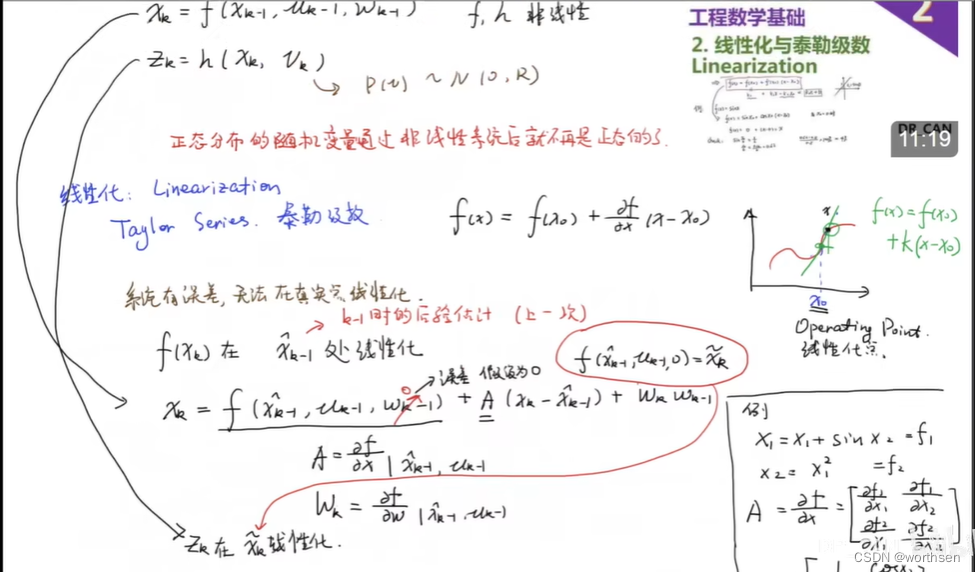 x_k = f(x_{k-1}, u_{k-1}, w_{k-1}) f, h 非线性
z_k = h(x_k, v_k)
↳ P(v) ~ N(0, R)
工程数学基础
2
2. 线性化与泰勒级数
Linearization
DR_CAN
11:19
正态分布的随机变量通过非线性系统后就不再是正态的了.
线性化: Linearization
Taylor Series. 泰勒级数
f(x) = f(x_0) + ∂f/∂x (x-x_0)
f(x) = f(x_0)
+ k(x-x_0)
x_0
Operating Point.
线性化点.
系统有误差, 无法在真实点线性化.
k-1时的后验估计 (上一次)
f(x_k) 在 x̂_{k-1} 处线性化
f(x̂_{k-1}, u_{k-1}, 0) = x̃_k
0 → 误差 假设为0
x_k = f(x̂_{k-1}, u_{k-1}, w_{k-1}) + A(x_k - x̂_{k-1}) + W_k w_{k-1}
A = ∂f/∂x | x̂_{k-1}, u_{k-1}
W_k = ∂f/∂w | x̂_{k-1}, u_{k-1}
z_k 在 x̃_k 线性化.
例
x_1 = x_1 + sin x_2 = f_1
x_2 = x_1^2 = f_2
A = ∂f/∂x = [∂f_1/∂x_1 ∂f_1/∂x_2
∂f_2/∂x_1 ∂f_2/∂x_2]
CSDN @worthsen